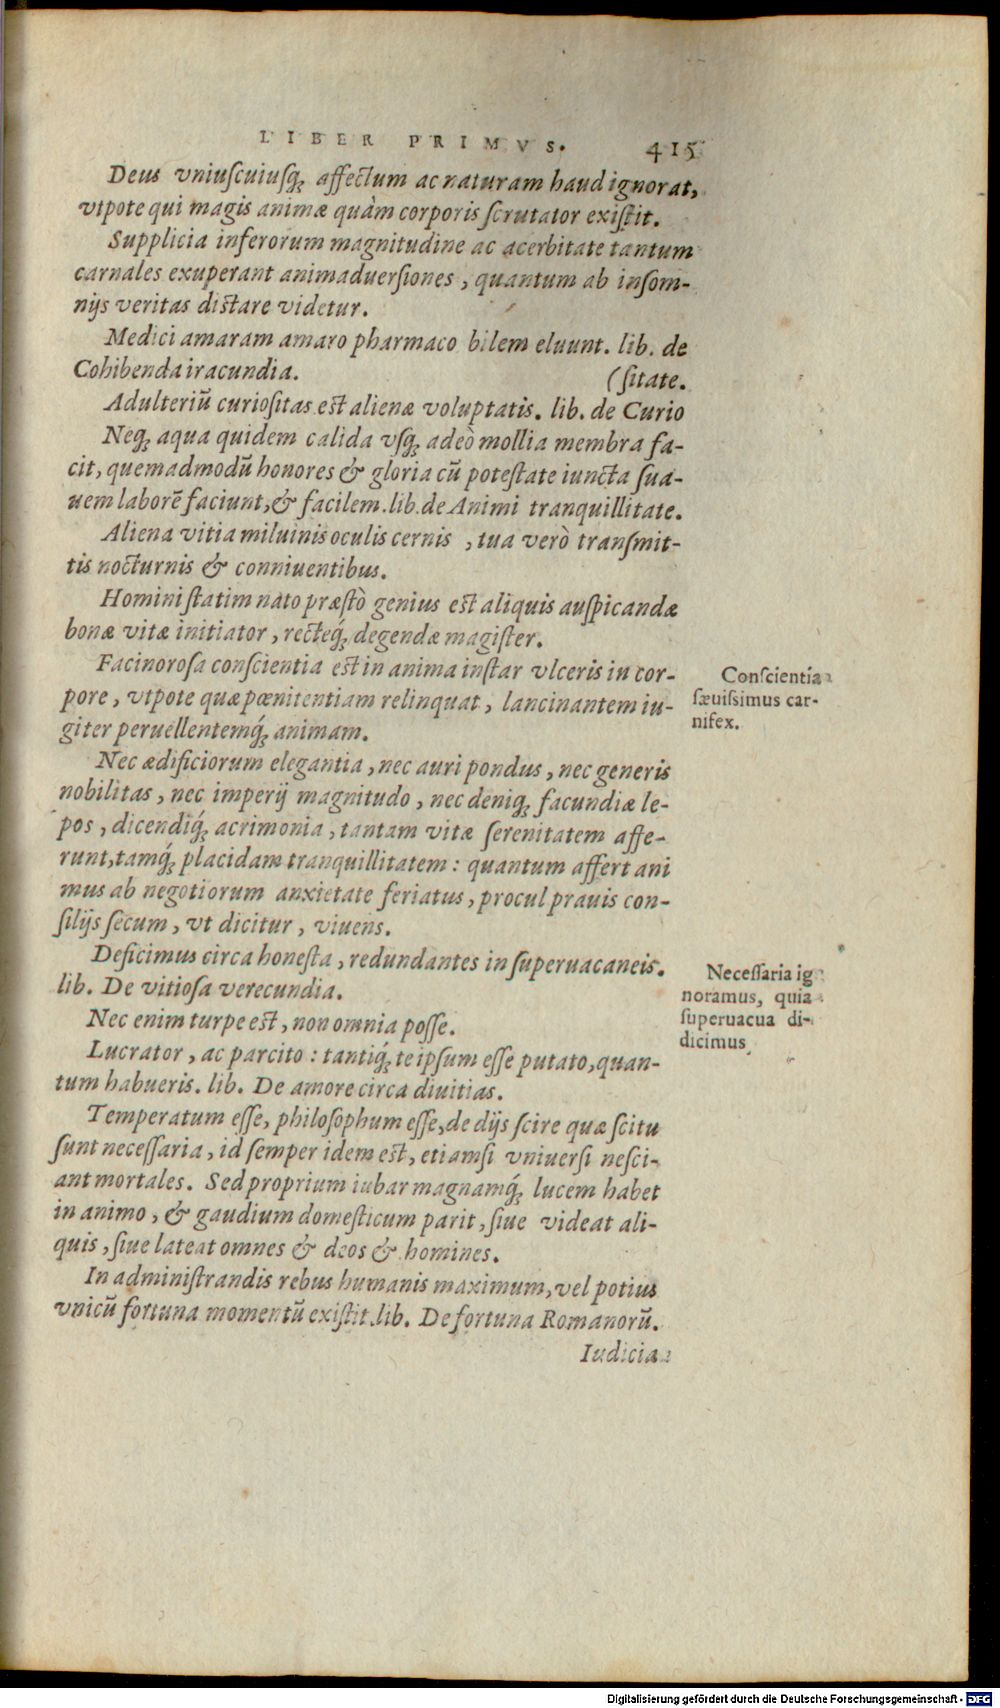 LIBER PRIMVS. 415
Deus vniuſcuiuſq́; affectum ac naturam haud ignorat,
vtpote qui magis animæ quàm corporis ſcrutator exiſtit.
Supplicia inferorum magnitudine ac acerbitate tantum
carnales exuperant animaduerſiones, quantum ab inſom-
nijs veritas diſtare videtur.
Medici amaram amaro pharmaco bilem eluunt. lib. de
Cohibenda iracundia. (ſitate.
Adulteriū curioſitas eſt alienæ voluptatis. lib. de Curio
Neq; aqua quidem calida vſq; adeò mollia membra fa-
cit, quemadmodū honores & gloria cū poteſtate iuncta ſua-
uem laborē faciunt, & facilem. lib. de Animi tranquillitate.
Aliena vitia miluinis oculis cernis, tua verò tranſmit-
tis nocturnis & conniuentibus.
Homini ſtatim nato præſtò genius eſt aliquis auſpicandæ
bonæ vitæ initiator, recteq́; degendæ magiſter.
Facinoroſa conſcientia eſt in anima inſtar vlceris in cor-
pore, vtpote quæ pœnitentiam relinquat, lancinantem iu-
giter peruellentemq́; animam.
Conſcientia
ſæuiſsimus car-
nifex.
Nec ædificiorum elegantia, nec auri pondus, nec generis
nobilitas, nec imperij magnitudo, nec deniq; facundiæ le-
pos, dicendiq́; acrimonia, tantam vitæ ſerenitatem affe-
runt, tamq́; placidam tranquillitatem: quantum affert ani
mus ab negotiorum anxietate feriatus, procul prauis con-
ſilijs ſecum, vt dicitur, viuens.
Deficimus circa honeſta, redundantes in ſuperuacaneis.
lib. De vitioſa verecundia.
Neceſſaria ig
noramus, quia
ſuperuacua di-
dicimus
Nec enim turpe eſt, non omnia poſſe.
Lucrator, ac parcito: tantiq́; te ipſum eſſe putato, quan-
tum habueris. lib. De amore circa diuitias.
Temperatum eſſe, philoſophum eſſe, de dijs ſcire quæ ſcitu
ſunt neceſſaria, id ſemper idem eſt, etiamſi vniuerſi neſci-
ant mortales. Sed proprium iubar magnamq́; lucem habet
in animo, & gaudium domeſticum parit, ſiue videat ali-
quis, ſiue lateat omnes & deos & homines.
In adminiſtrandis rebus humanis maximum, vel potius
vnicū fortuna momentū exiſtit. lib. De fortuna Romanorū.
Iudicia
Digitalisierung gefördert durch die Deutsche Forschungsgemeinschaft - DFG